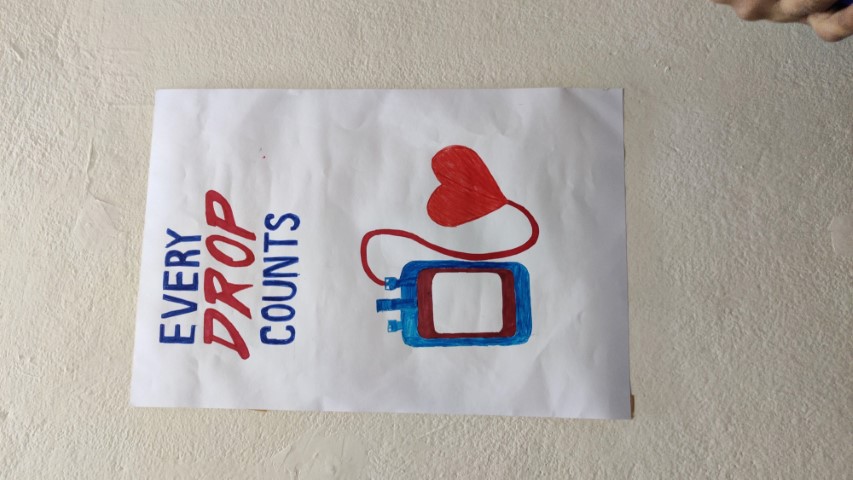 EVERY
DROP
COUNTS